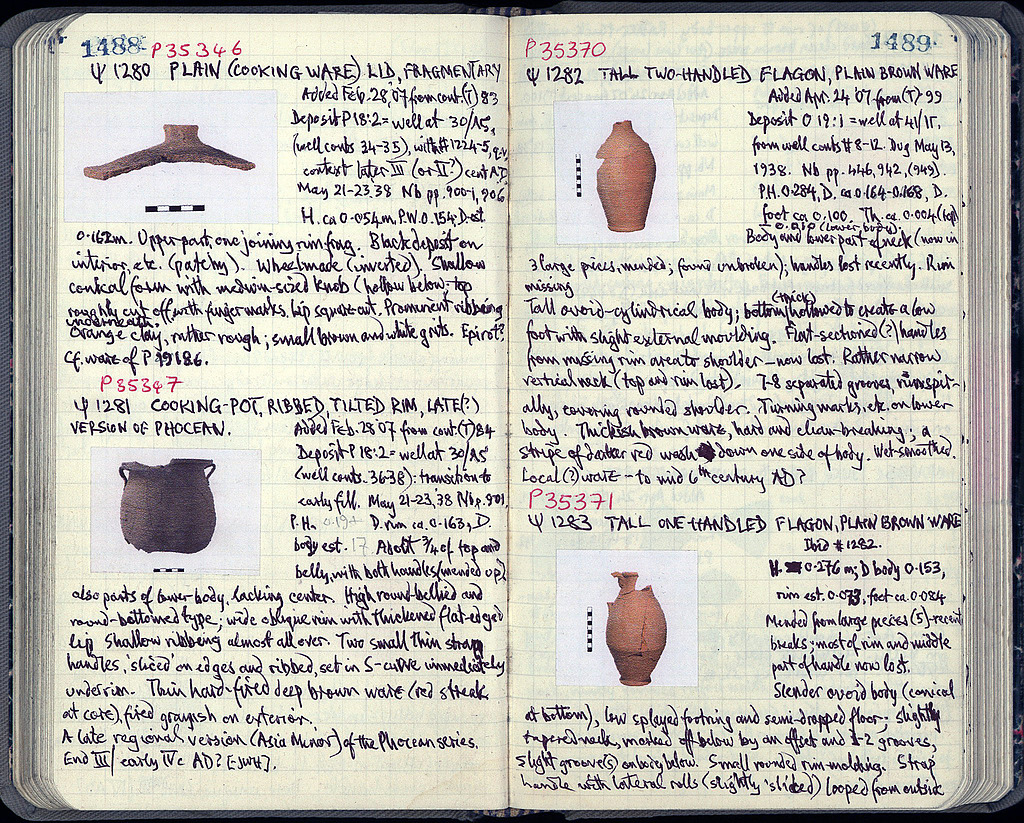 1488 P35346
Ψ 1280 PLAIN (COOKING WARE) LID, FRAGMENTARY
Added Feb. 28, 07 from cont. (T) 83
Deposit P 18:2 = well at 30/ΛΣ,
(well conts 34-35), with # 1224-5, q.v.
context later III (or II?) cent A.D.
May 21-23.38 Nb pp. 900-1, 906
H. ca 0.054m. P.W. 0.154 D. est.
0.162m. Upper part, one joining rim frag. Black deposit on
interior, etc. (patchy). Wheelmade (inverted). Shallow
conical form with medium-sized knob (hollow below; top
roughly cut off, with finger marks, lip square cut. Prominent ribbing
underneath.
Orange clay, rather rough; small brown and white grits. Epirot?
Cf. ware of P 39186.
P35347
Ψ 1281 COOKING-POT, RIBBED, TILTED RIM, LATE(?)
VERSION OF PHOCEAN.
Added Feb. 28 07 from cont. (T) 84
Deposit P 18:2 = well at 30/ΛΣ
(well conts. 36-38): transition to
early fill. May 21-23, 38 Nb p. 901.
P.H. 0.19+ D. rim ca. 0.163, D.
body est. 17. About 3/4 of top and
belly, with both handles (mended up)
also parts of lower body, lacking center. High round-bellied and
round-bottomed type; wide oblique rim with thickened flat-edged
lip Shallow ribbing almost all over. Two small thin strap
handles, 'sliced' on edges and ribbed, set in S-curve immediately
under rim. Thin hard-fired deep brown ware (red streak
at core), fired grayish on exterior.
A late regional version (Asia Minor) of the Phocean series.
End III / early IVc AD? [JWH].
P35370 1489
Ψ 1282 TALL TWO-HANDLED FLAGON, PLAIN BROWN WARE
Added Apr. 24 '07 from (T) 99
Deposit O 19:1 = well at 41/ΙΓ,
from well conts # 8-12. Dug May 13,
1938. Nb pp. 446, 942, (949).
P.H. 0.284, D. ca 0.164-0.168, D.
foot ca 0.100. Th. ca 0.004 (top)
(lower body)
Body and lower part of neck (now in
3 large pieces, mended; found unbroken); handles lost recently. Rim
missing
Tall ovoid-cylindrical body; bottom (thick) hollowed to create a low
foot with slight external moulding. Flat-sectioned (?) handles
from missing rim area to shoulder – now lost. Rather narrow
vertical neck (top and rim lost). 7-8 separated grooves, run spir-
ally, covering rounded shoulder. Turning marks, etc. on lower
body. Thickish brown ware, hard and clean-breaking; a
stripe of darker red wash down one side of body. Wet-smoothed.
Local (?) ware – to mid 6th century AD?
P35371
Ψ 1283 TALL ONE-HANDLED FLAGON, PLAIN BROWN WARE
Ibid #1282.
H. 0.276 m; D body 0.153,
rim est. 0.073, foot ca. 0.084
Mended from large pieces (5)-recent
breaks; most of rim and middle
part of handle now lost.
Slender ovoid body (conical
at bottom), low splayed footring and semi-dropped floor; slightly
tapered neck, marked off below by an offset and 1-2 grooves,
slight groove(s) on body below. Small rounded rim-molding. Strap
handle with lateral rolls (slightly 'sliced') looped from outside